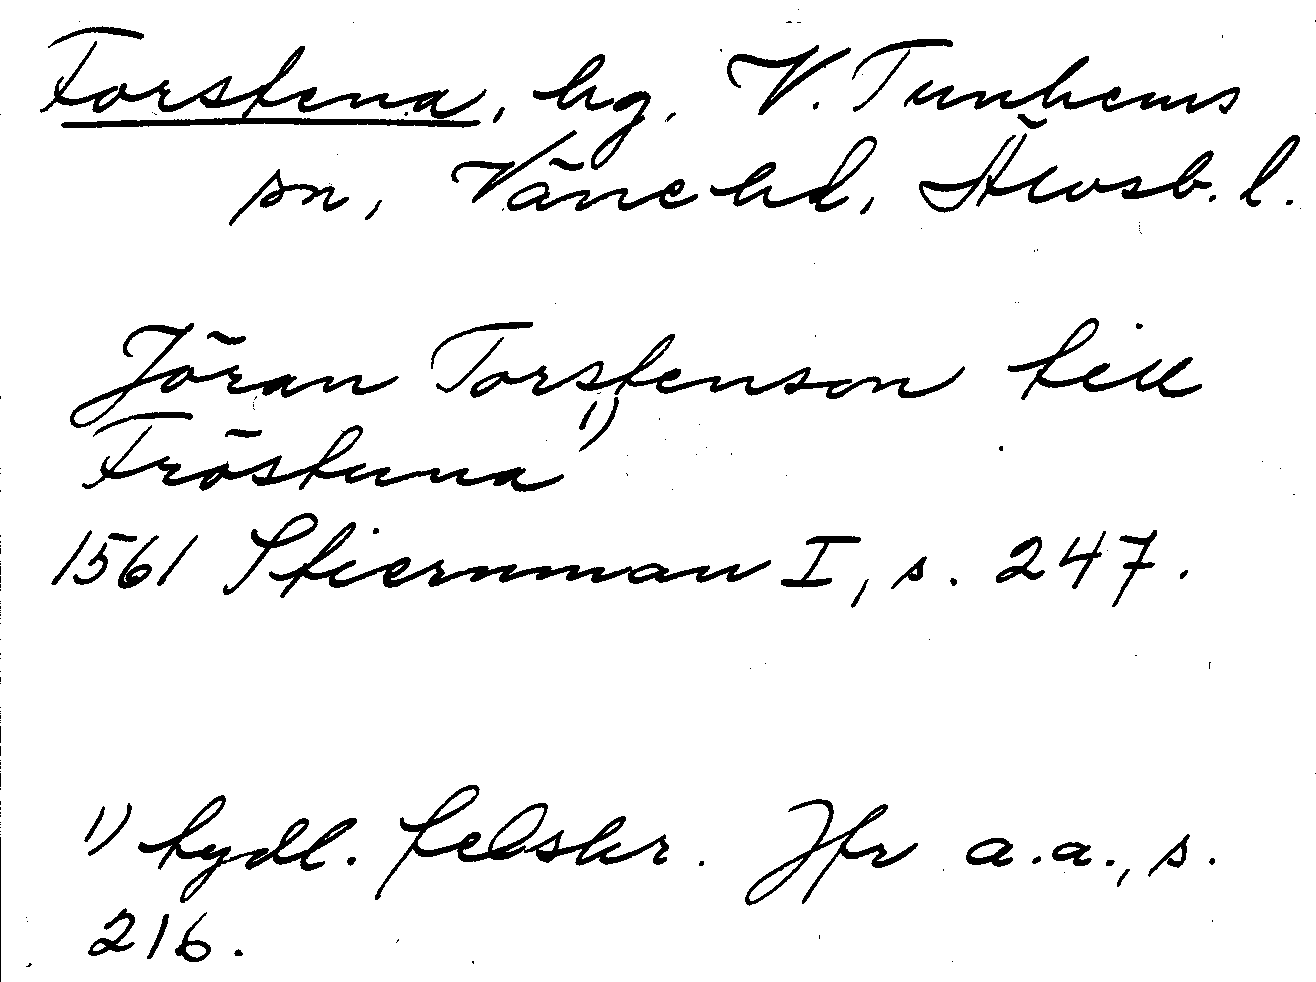 Forstena, hg, V. Tunhems
sn, Väne hd, Älvsb. l.
Jöran Torstenson till
Fröstuna 1)
1561 Stiernman I, s. 247.
1) tydl. felskr. Jfr a.a., s.
216.